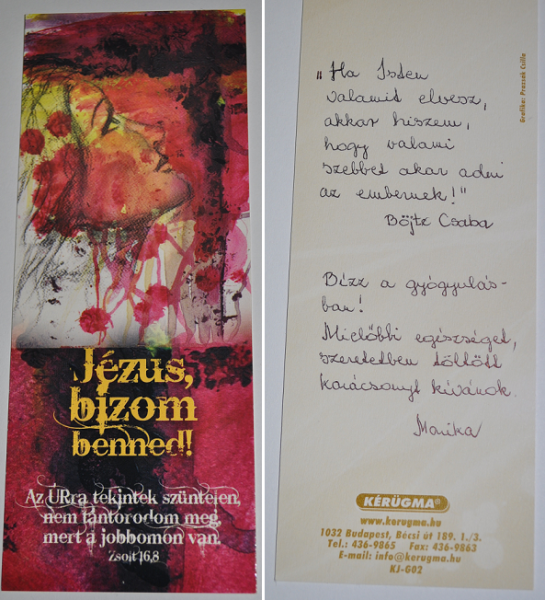 Jézus,
bízom
benned!
Az ÚRra tekintek szüntelen,
nem tántorodom meg,
mert a jobbomon van.
Zsolt 16,8
Grafika: Prazsák Csilla
„Ha Isten
valamit elvesz,
akkor hiszem,
hogy valami
szebbet akar adni
az embernek!"
Böjte Csaba
Bízz a gyógyulás-
ban!
Mielőbbi egészséget,
szeretetben töltött
karácsonyt kívánok.
Monika
KÉRÜGMA®
www.kerugma.hu
1032 Budapest, Bécsi út 189. I./3.
Tel.: 436-9865 Fax: 436-9863
E-mail: info@kerugma.hu
KJ-G02